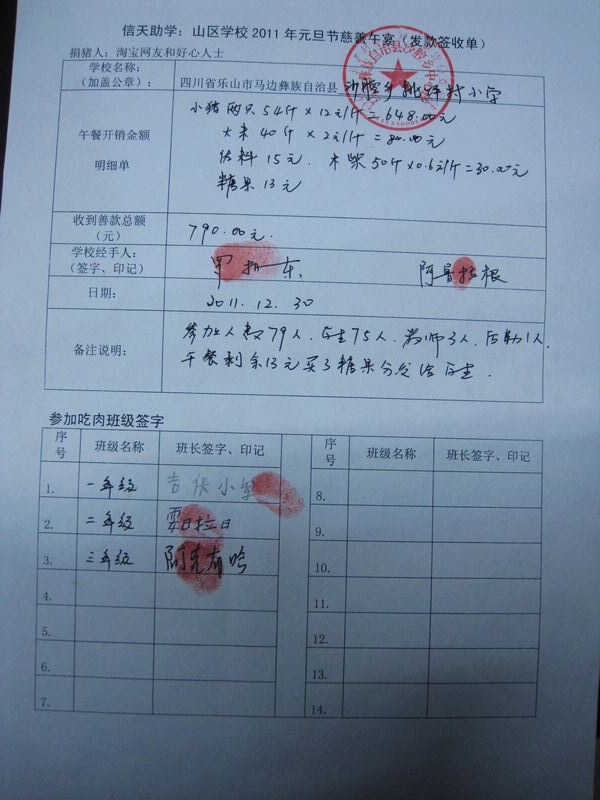 信天助学：山区学校 2011 年元旦节慈善午宴（发款签收单）
捐猪人：淘宝网友和好心人士
学校名称：
（加盖公章）：
四川省乐山市马边彝族自治县 沙腔乡 桃坪村小学
午餐开销金额
明细单
小猪两只 54斤×12元/斤=648.00元
大米 40斤×2元/斤=80.00元
佐料 15元. 木柴 50斤×0.6元/斤=30.00元
糖果 13元
收到善款总额
（元）
790.00元.
学校经手人：
（签字、印记）
东
阿 根
日期：
2011. 12. 30
备注说明：
参加人数79人. 学生75人. 教师3人. 后勤1人.
午餐剩余13元买了糖果分发给学生.
参加吃肉班级签字
序号 班级名称 班长签字、印记 序号 班级名称 班长签字、印记
1. 一年级 吉 小 8.
2. 二年级 日拉日 9.
3. 三年级 阿克有 10.
4. 11.
5. 12.
6. 13.
7. 14.